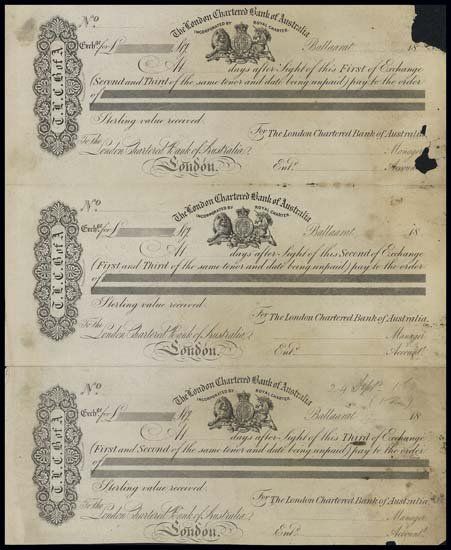 No
The London Chartered Bank of Australia
INCORPORATED BY ROYAL CHARTER.
Exche. for £ Stg. Ballaarat 18
At days after Sight of this First of Exchange
(Second and Third of the same tenor and date being unpaid) pay to the order
of
Sterling value received.
For The London Chartered Bank of Australia
To the
London Chartered Bank of Australia, Manager
London. Entd. Accountt.
T. L. C. B of A
No
The London Chartered Bank of Australia
INCORPORATED BY ROYAL CHARTER.
Exche. for £ Stg. Ballaarat 18
At days after Sight of this Second of Exchange
(First and Third of the same tenor and date being unpaid) pay to the order
of
Sterling value received.
For The London Chartered Bank of Australia.
To the
London Chartered Bank of Australia, Manager
London. Entd. Accountt.
T. L. C. B of A
No
The London Chartered Bank of Australia
INCORPORATED BY ROYAL CHARTER.
24 Sept.
Exche. for £ Stg. Ballaarat 18
At days after Sight of this Third of Exchange
(First and Second of the same tenor and date being unpaid) pay to the order
of
Sterling value received.
For The London Chartered Bank of Australia.
To the
London Chartered Bank of Australia, Manager
London. Entd. Accountt.
T. L. C. B of A